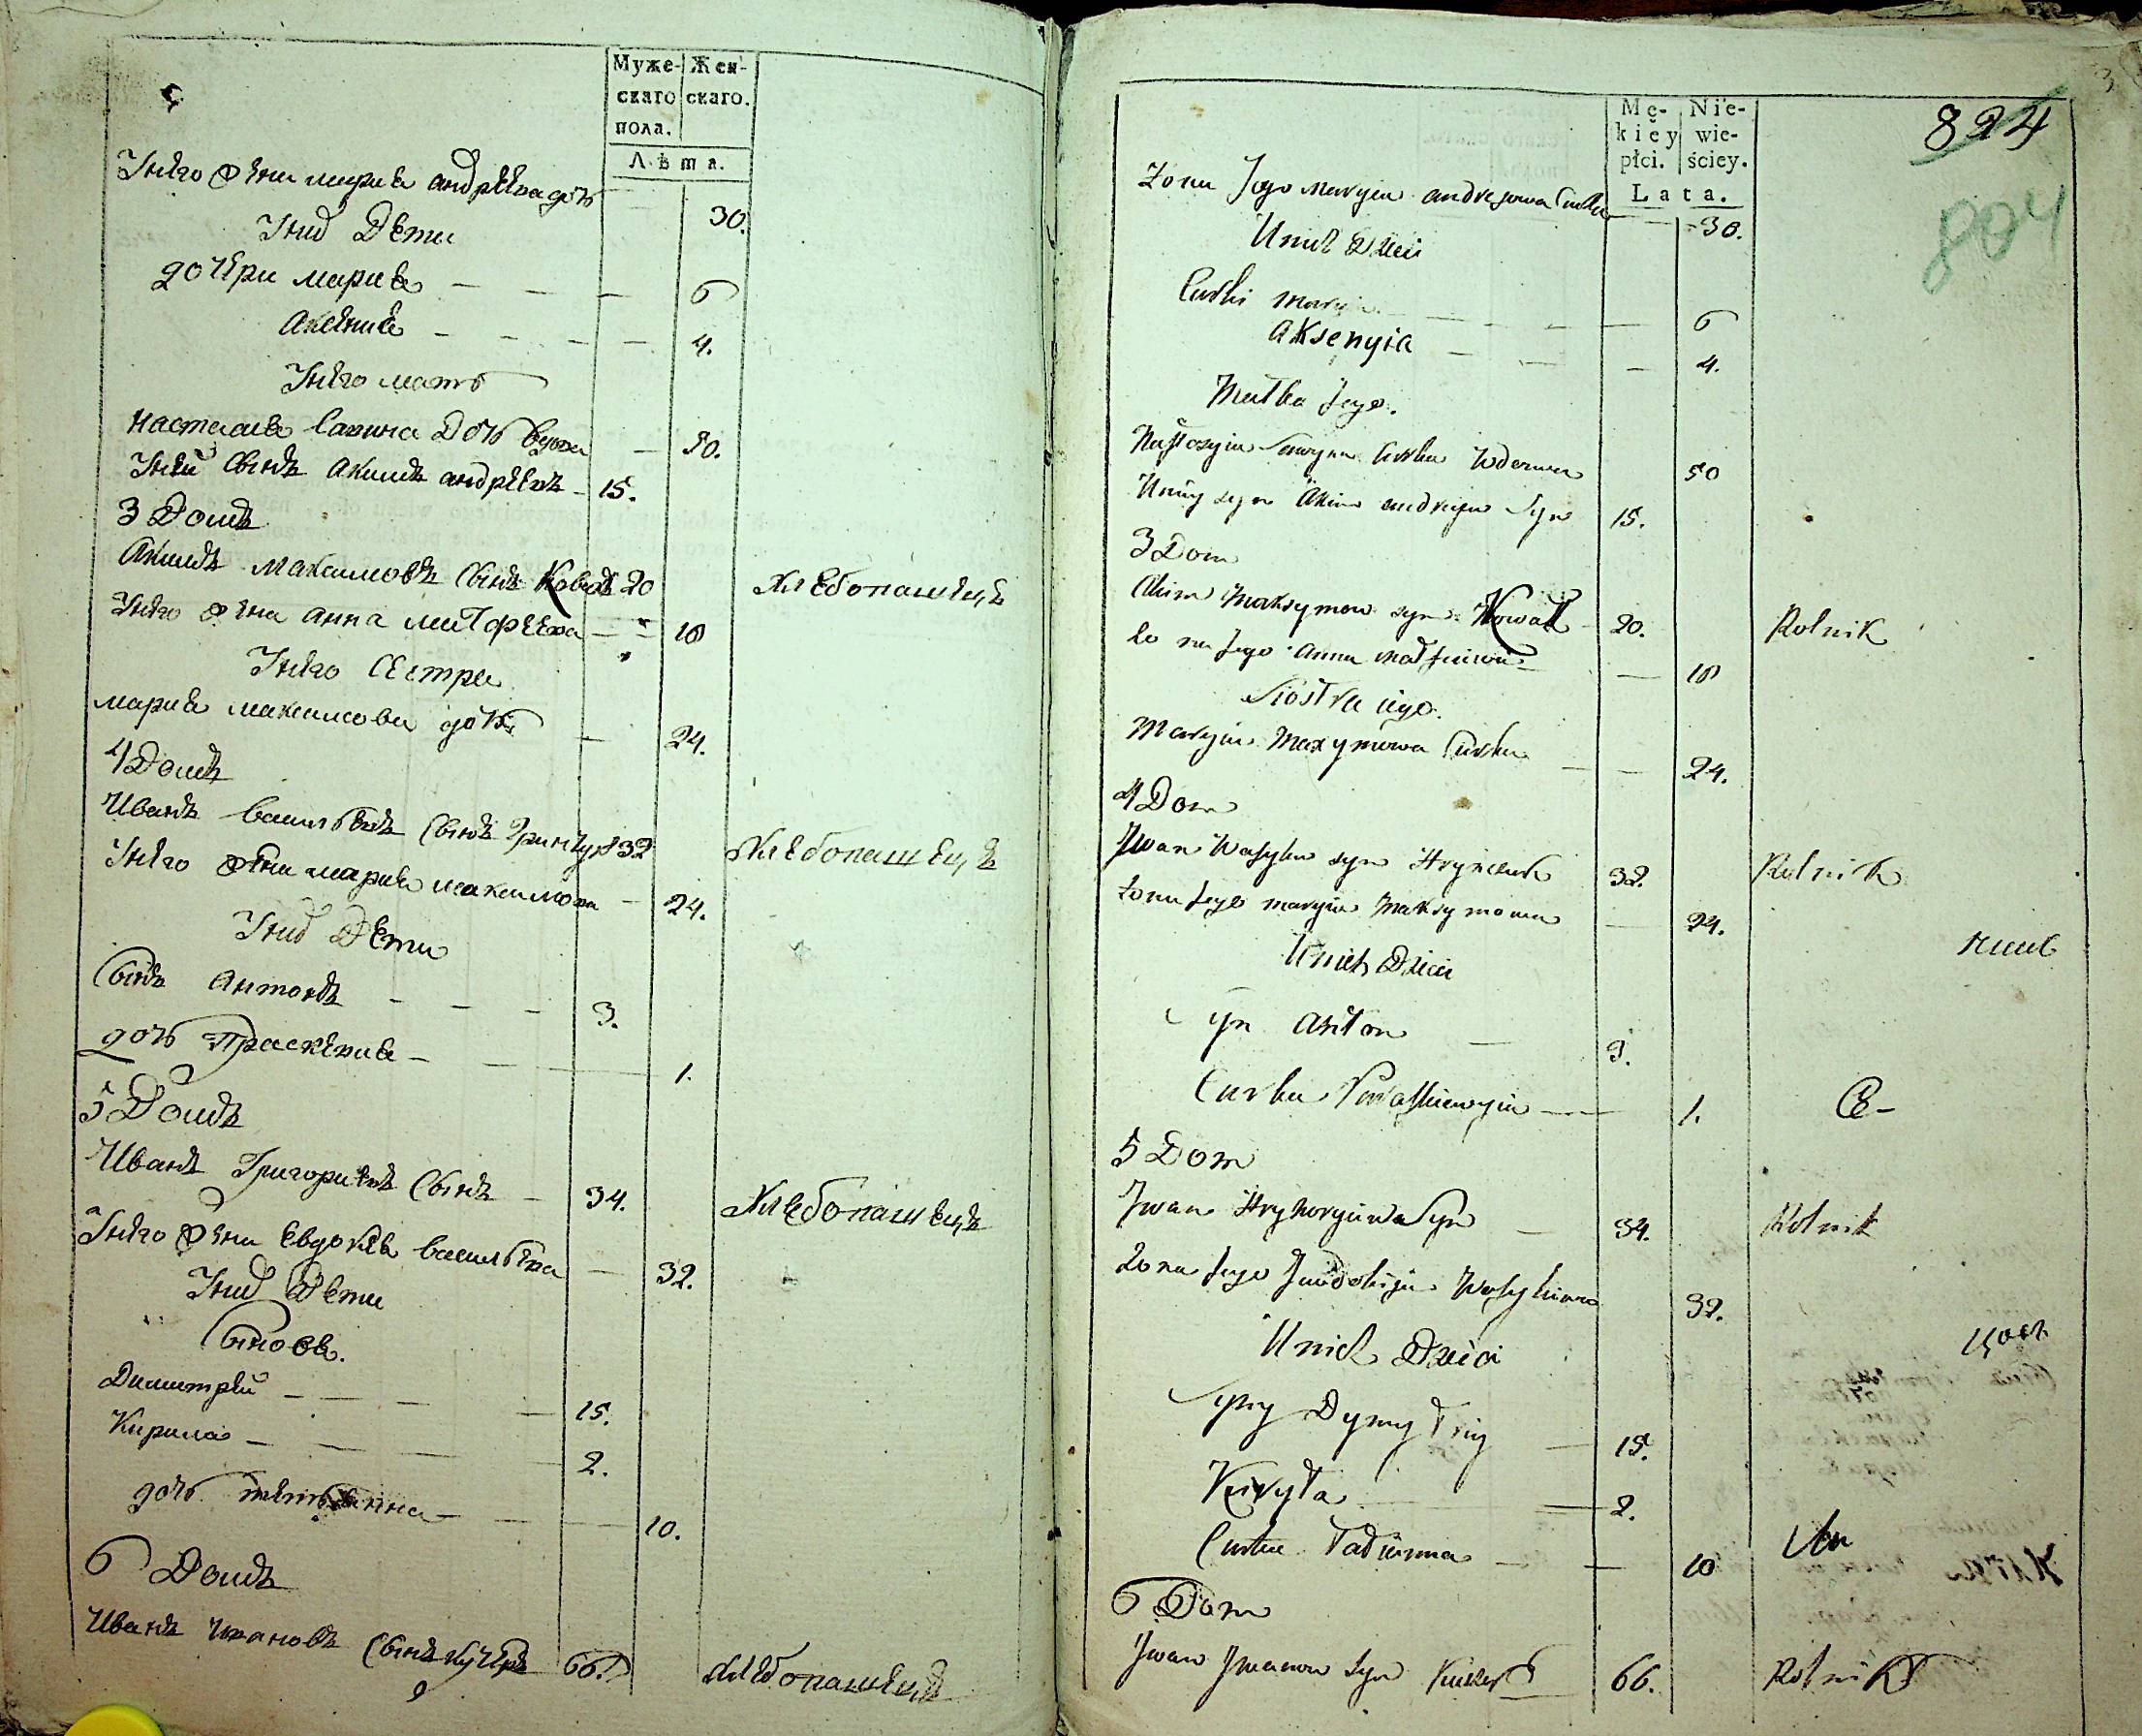 Муже- Жен-
скаго скаго.
пола.
Лѣта.
Унего жена мария андреева дочь 30.
Уних Дети
дочери мария 6
Аксения 4.
Унего мать
Настасия Савина Дочь вдова 50.
Уней сынъ Акимъ андреевъ 15.
3 Домъ
Акимъ Максимовъ сынъ Ковалъ 20 Хлебопашецъ
Унего жена Анна Матфеева 18
Унего Сестра
мария максимова дочь 24.
4 Домъ
Иванъ васильевъ сынъ Гринчукъ 32 Хлебопашецъ
Унего жена мария максимова 24.
Уних Дети
Сынъ Антонъ 3.
дочь Праскевия 1.
5 Домъ
Иванъ Григориевъ Сынъ 34. Хлебопашецъ
Унего жена Евдокия васильева 32.
Уних Дети
Сыновя.
Димитрей 15.
Кирила 2.
дочь 10.
6 Домъ
Иванъ Ивановъ Сынъ кучеръ 66. Хлебопашецъ
Mę- Nie-
kiey wie-
płci. ściey.
Lata.
824
804
Zona Jego Maryia andrejowa Curka 30.
Unich Dzieci
Curki Maryia 6
Aksenyia 4.
Matka Jego.
Nastazyia Sawyna Curka Wdowa 50
Uniey syn Akim andrejew Syn 15.
3 Dom
Akim Maksymow syn Kowal 20. Rolnik
Zona Jego Anna Matfeiowa 18
Siostra iego.
Maryia Maxymowa Curka 24.
4 Dom
Jwan Wasylew syn Hrynczuk 32. Rolnik
Zona Jego maryia Maksymowa 24.
Unich Dzieci
Syn Anton 3.
Curka Paraskiewyia 1.
5 Dom
Jwan Hryhoryiow Syn 34. Rolnik
Zona Jego Jewdokija Wasylowa 32.
Unich Dzieci
Syny Dymytriy 15.
Kiryła 2.
Curka Tatianna 10
6 Dom
Jwan Jwanow Syn Kuczer 66. Rolnik